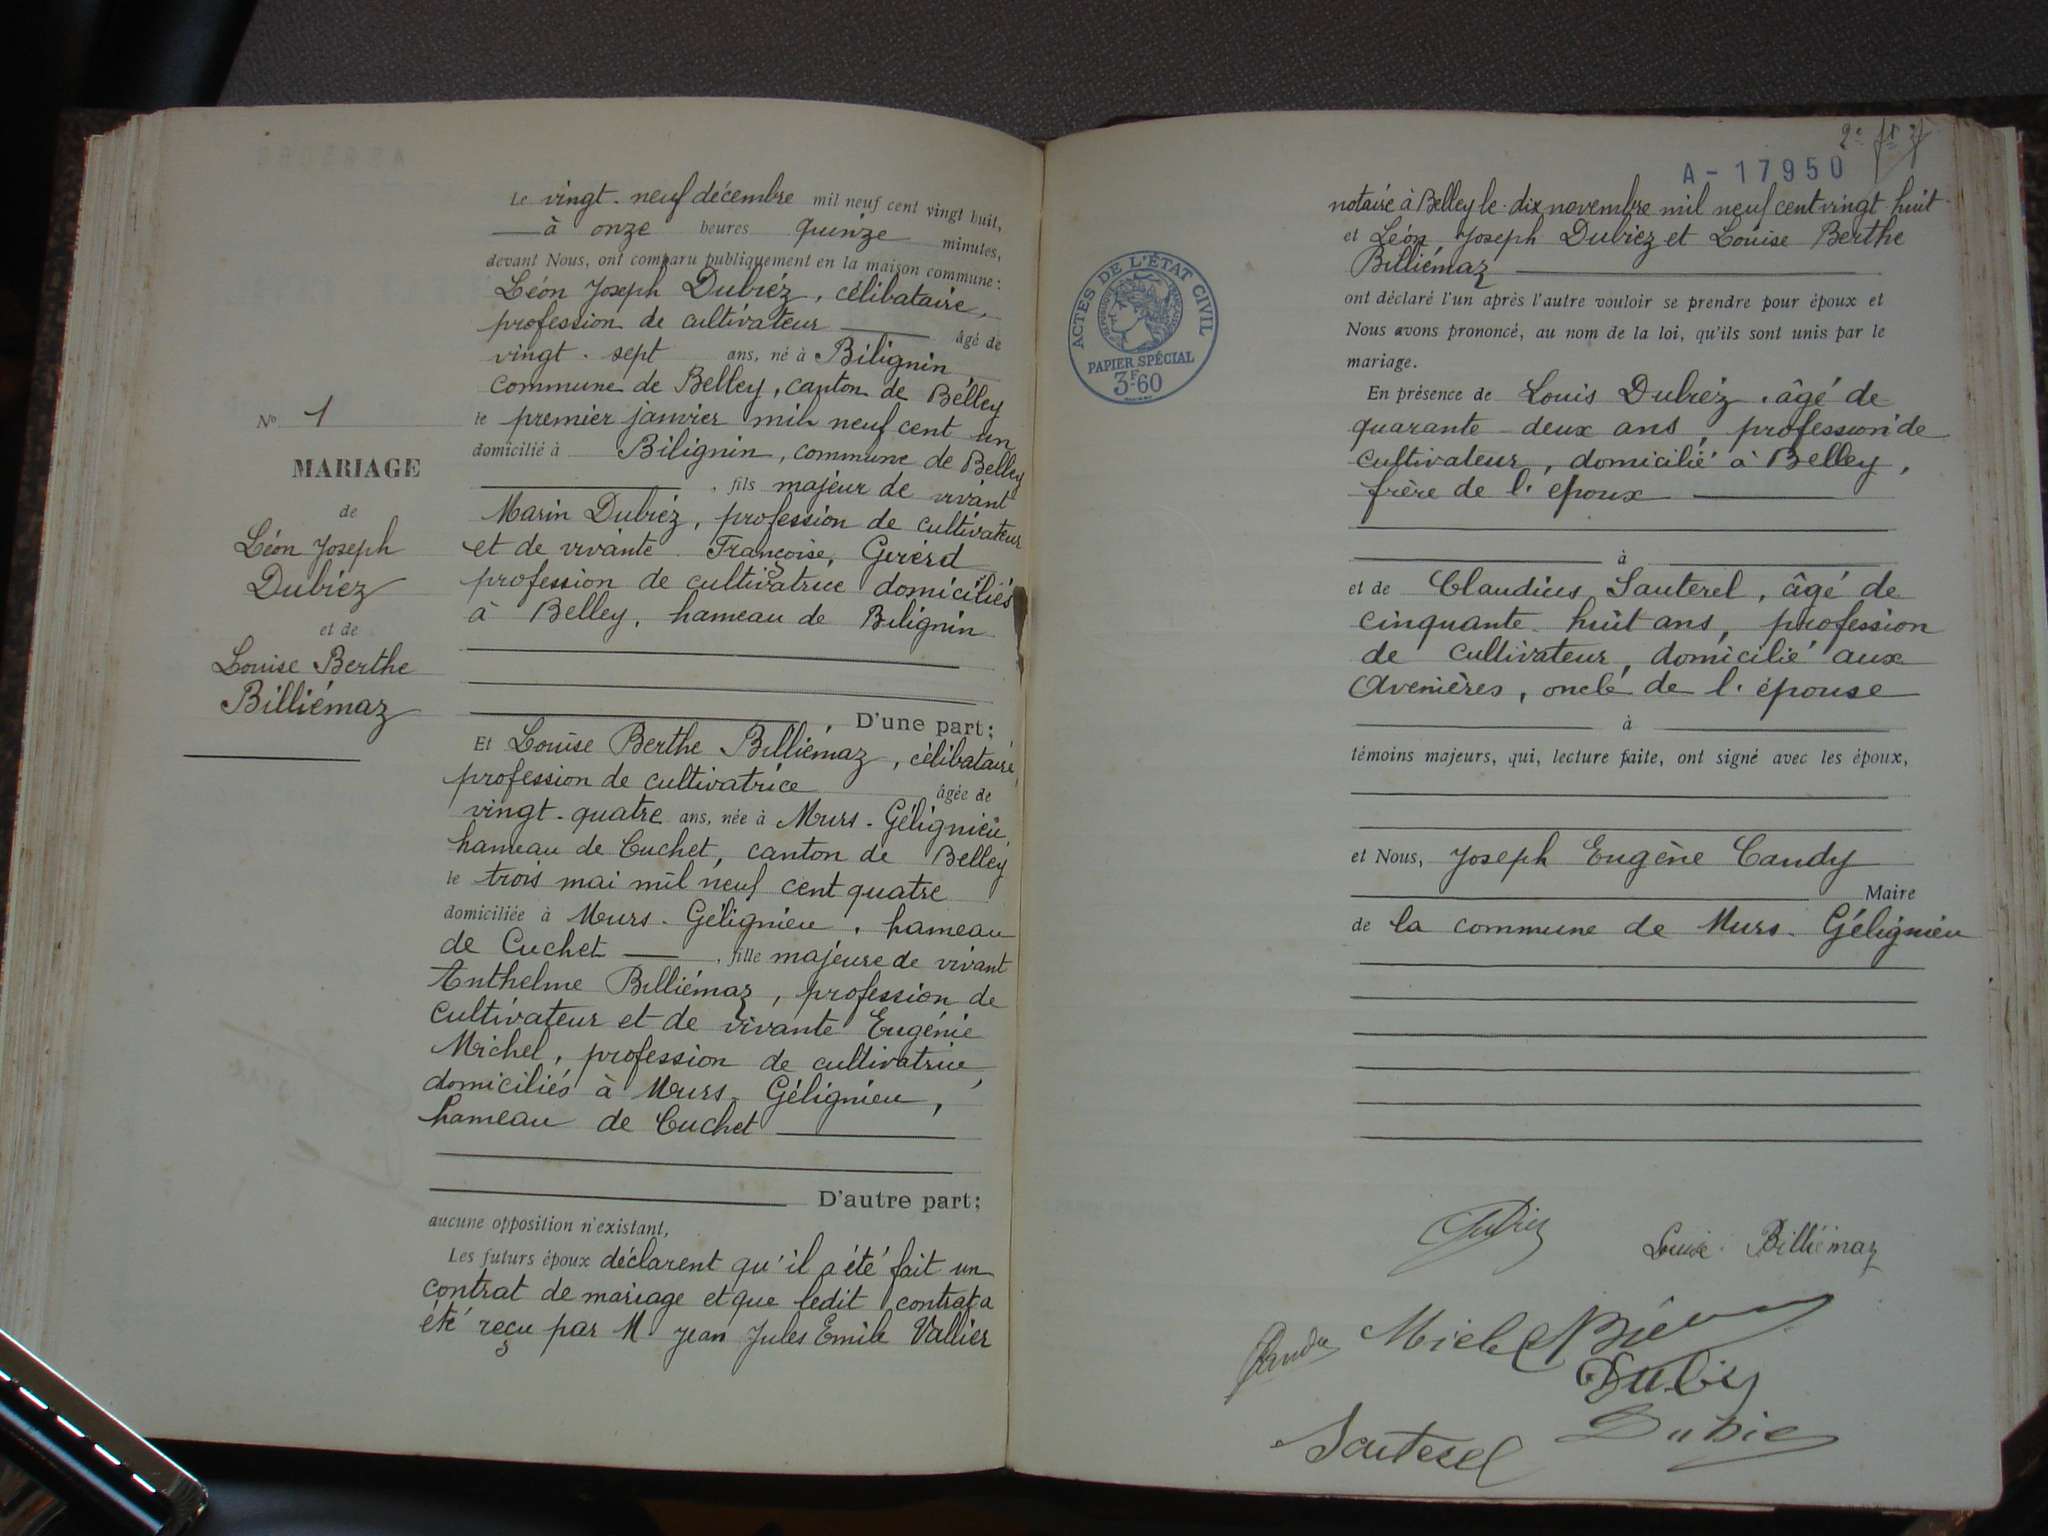 Le vingt-neuf décembre mil neuf cent vingt huit,
à onze heures quinze minutes,
devant Nous, ont comparu publiquement en la maison commune :
Léon Joseph Dubiéz, célibataire,
profession de cultivateur âgé de
vingt-sept ans, né à Bilignin,
commune de Belley, canton de Belley
le premier janvier mil neuf cent un
domicilié à Bilignin, commune de Belley
, fils majeur de vivant
Marin Dubiéz, profession de cultivateur
et de vivante Françoise,
profession de cultivatrice domiciliés
à Belley, hameau de Bilignin
D'une part ;
No 1
MARIAGE
de
Léon Joseph
Dubiez
et de
Louise Berthe
Billiémaz
Et Louise Berthe Billiémaz, célibataire,
profession de cultivatrice âgée de
vingt-quatre ans, née à Murs-Gélignieu,
hameau de Cuchet, canton de Belley
le trois mai mil neuf cent quatre
domiciliée à Murs-Gélignieu, hameau
de Cuchet , fille majeure de vivant
Anthelme Billiémaz, profession de
cultivateur et de vivante Eugénie
Michel, profession de cultivatrice,
domiciliés à Murs-Gélignieu,
hameau de Cuchet
D'autre part ;
aucune opposition n'existant,
Les futurs époux déclarent qu'il a été fait un
contrat de mariage et que ledit contrat a
été reçu par M. Jean Jules Emile Vallier
A-17950
notaire à Belley le dix novembre mil neuf cent vingt-huit
et Léon Joseph Dubiez et Louise Berthe
Billiémaz
ont déclaré l'un après l'autre vouloir se prendre pour époux et
Nous avons prononcé, au nom de la loi, qu'ils sont unis par le
mariage.
ACTES DE L'ÉTAT CIVIL
RÉPUBLIQUE FRANÇAISE
PAPIER SPÉCIAL
3F60
En présence de Louis Dubiéz, âgé de
quarante-deux ans, profession de
cultivateur, domicilié à Belley,
frère de l'epoux
à
et de Claudius Sauterel, âgé de
cinquante-huit ans, profession
de cultivateur, domicilié aux
Avenières, oncle de l'épouse
à
témoins majeurs, qui, lecture faite, ont signé avec les époux,
et Nous, Joseph Eugène Candy
Maire
de la commune de Murs-Gélignieu
Dubiez
Louise Billiémaz
Sauterel